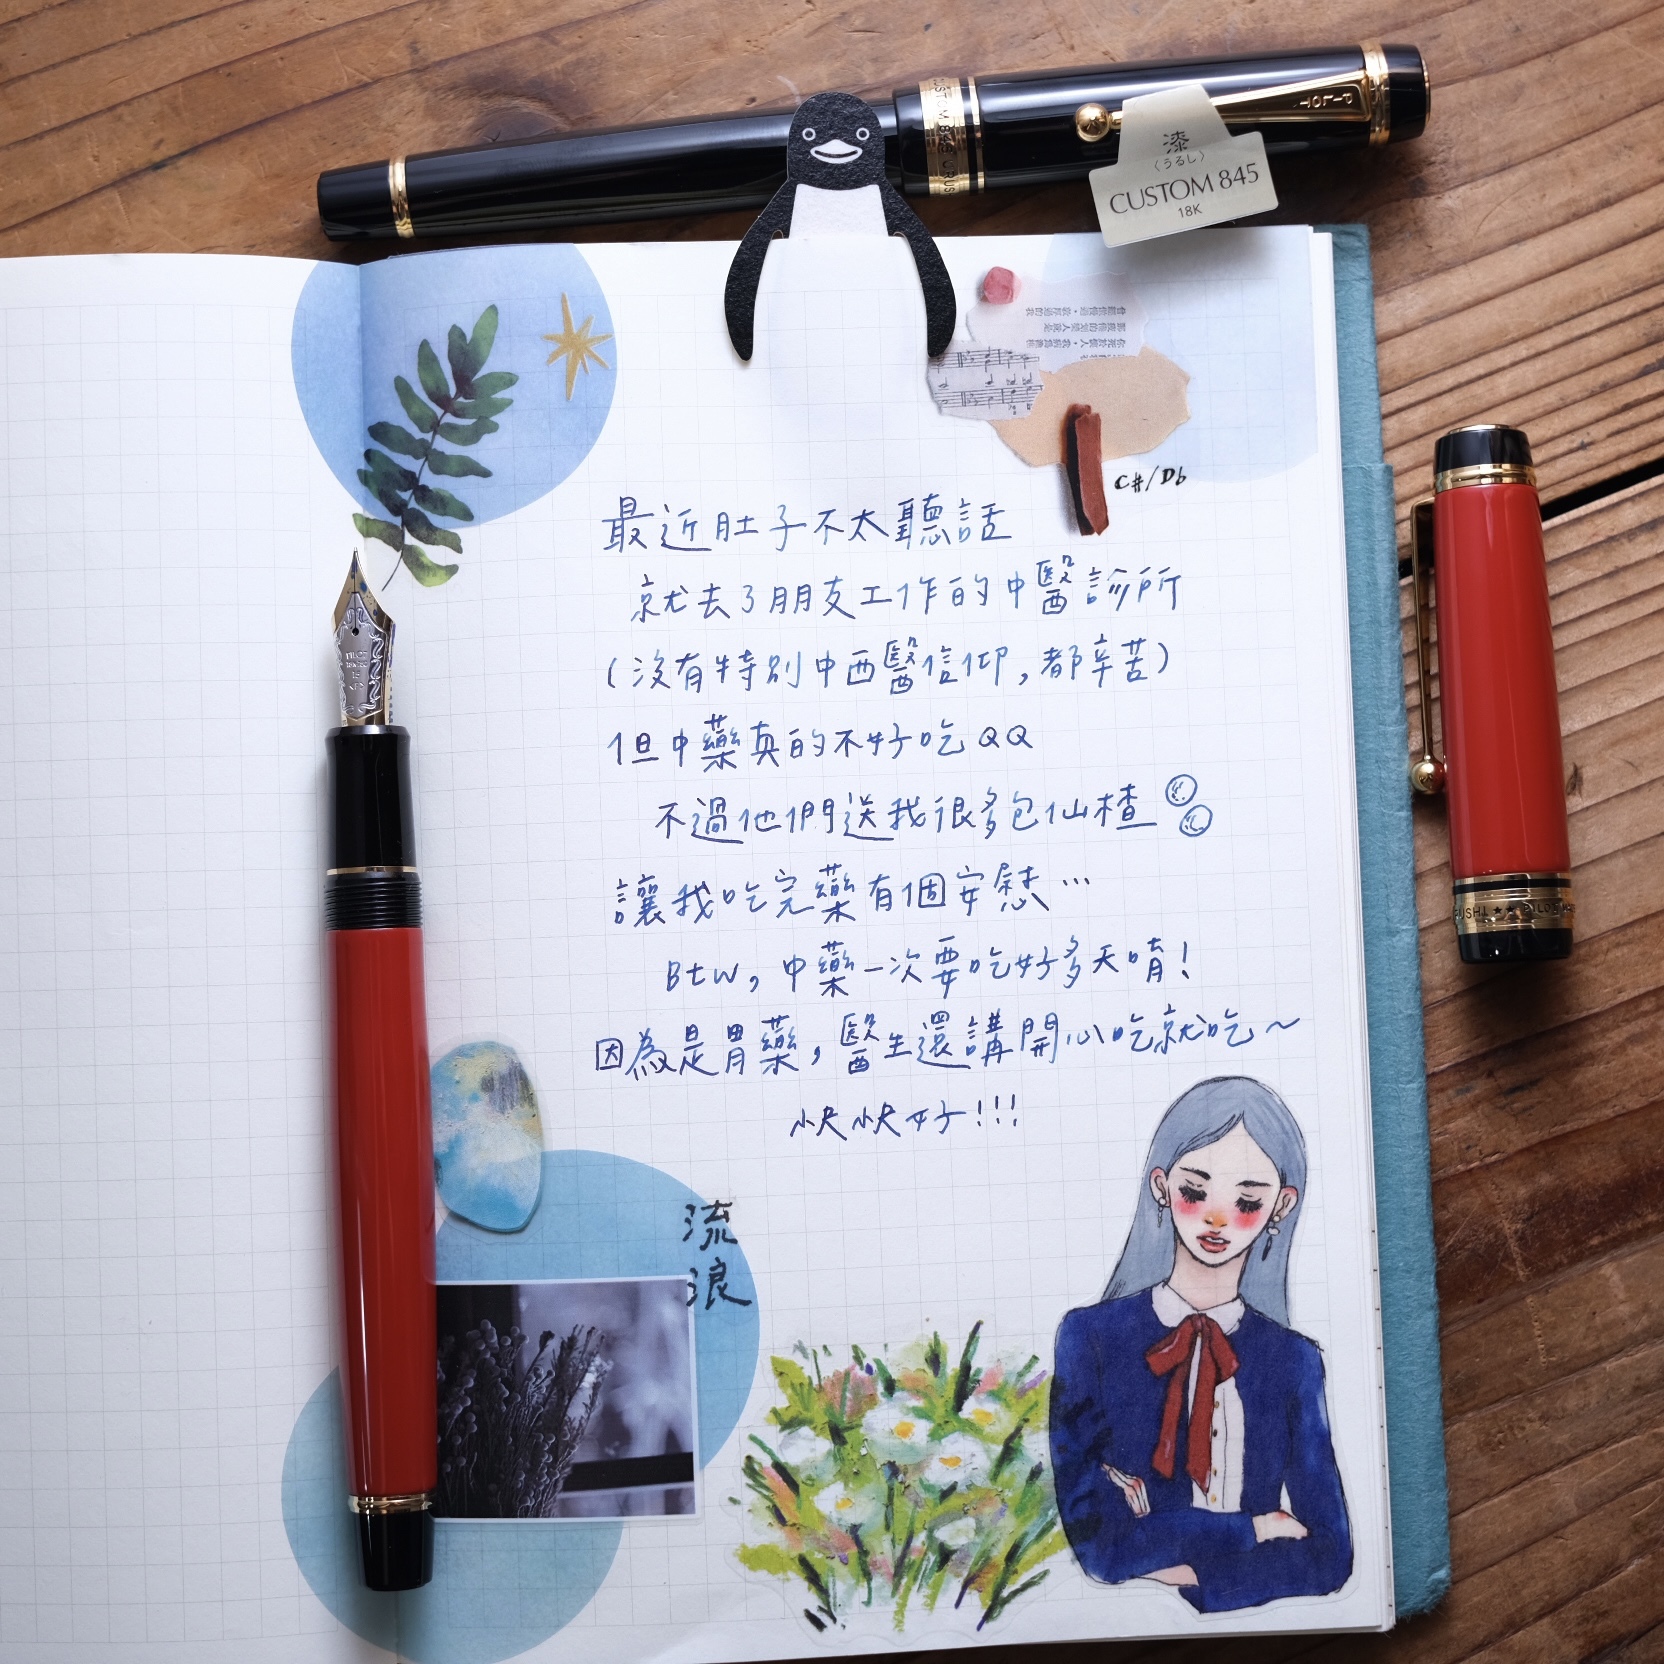 PILOT
CUSTOM 845 URUS
漆
〈うるし〉
CUSTOM 845
18K
C#/Db
最近肚子不太聽話
就去了朋友工作的中醫診所
(沒有特別中西醫信仰,都辛苦)
但中藥真的不好吃QQ
不過他們送我很多包仙楂
讓我吃完藥有個安慰…
Btw, 中藥一次要吃好多天唷!
因為是胃藥,醫生還講開心吃就吃~
快快好!!!
流
浪